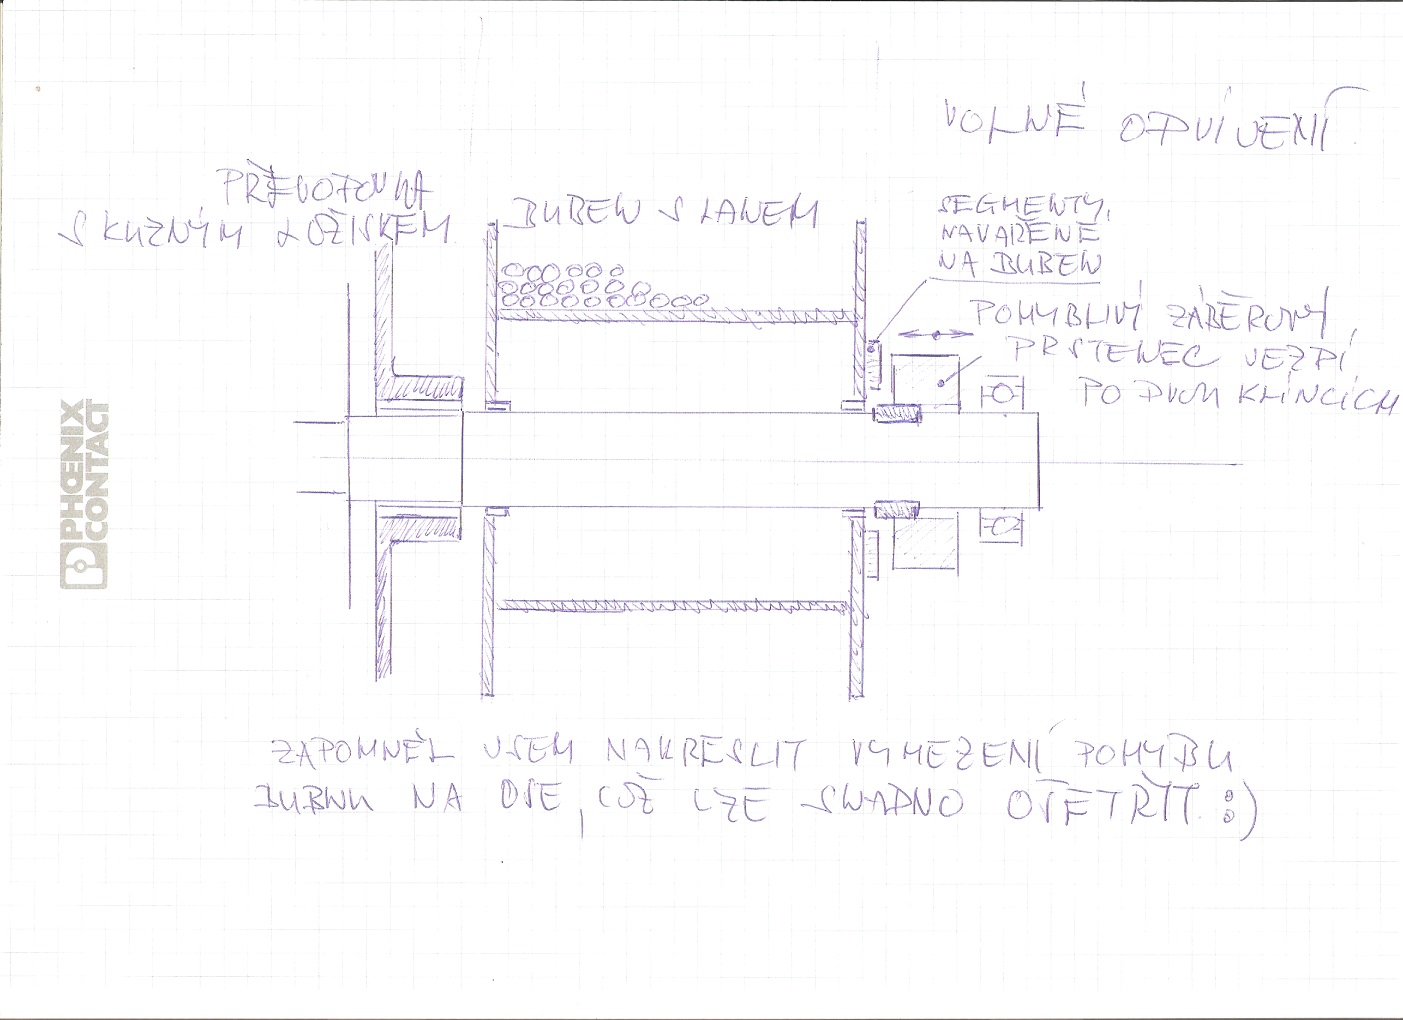 VOLNÉ ODVÍJENÍ
PŘEVODOVKA
S KUZNÝM LOŽISKEM
BUBEN S LANEM
SEGMENTY,
NAVAŘENÉ
NA BUBEN
POHYBLIVÝ ZÁBĚROVÝ
PRSTENEC JEZDÍ
PO DVOU KLÍNCÍCH
PHŒNIX
CONTACT
ZAPOMNĚL JSEM NAKRESLIT VYMEZENÍ POHYBU
BUBNU NA OSE, COŽ LZE SNADNO OŠETŘIT :)